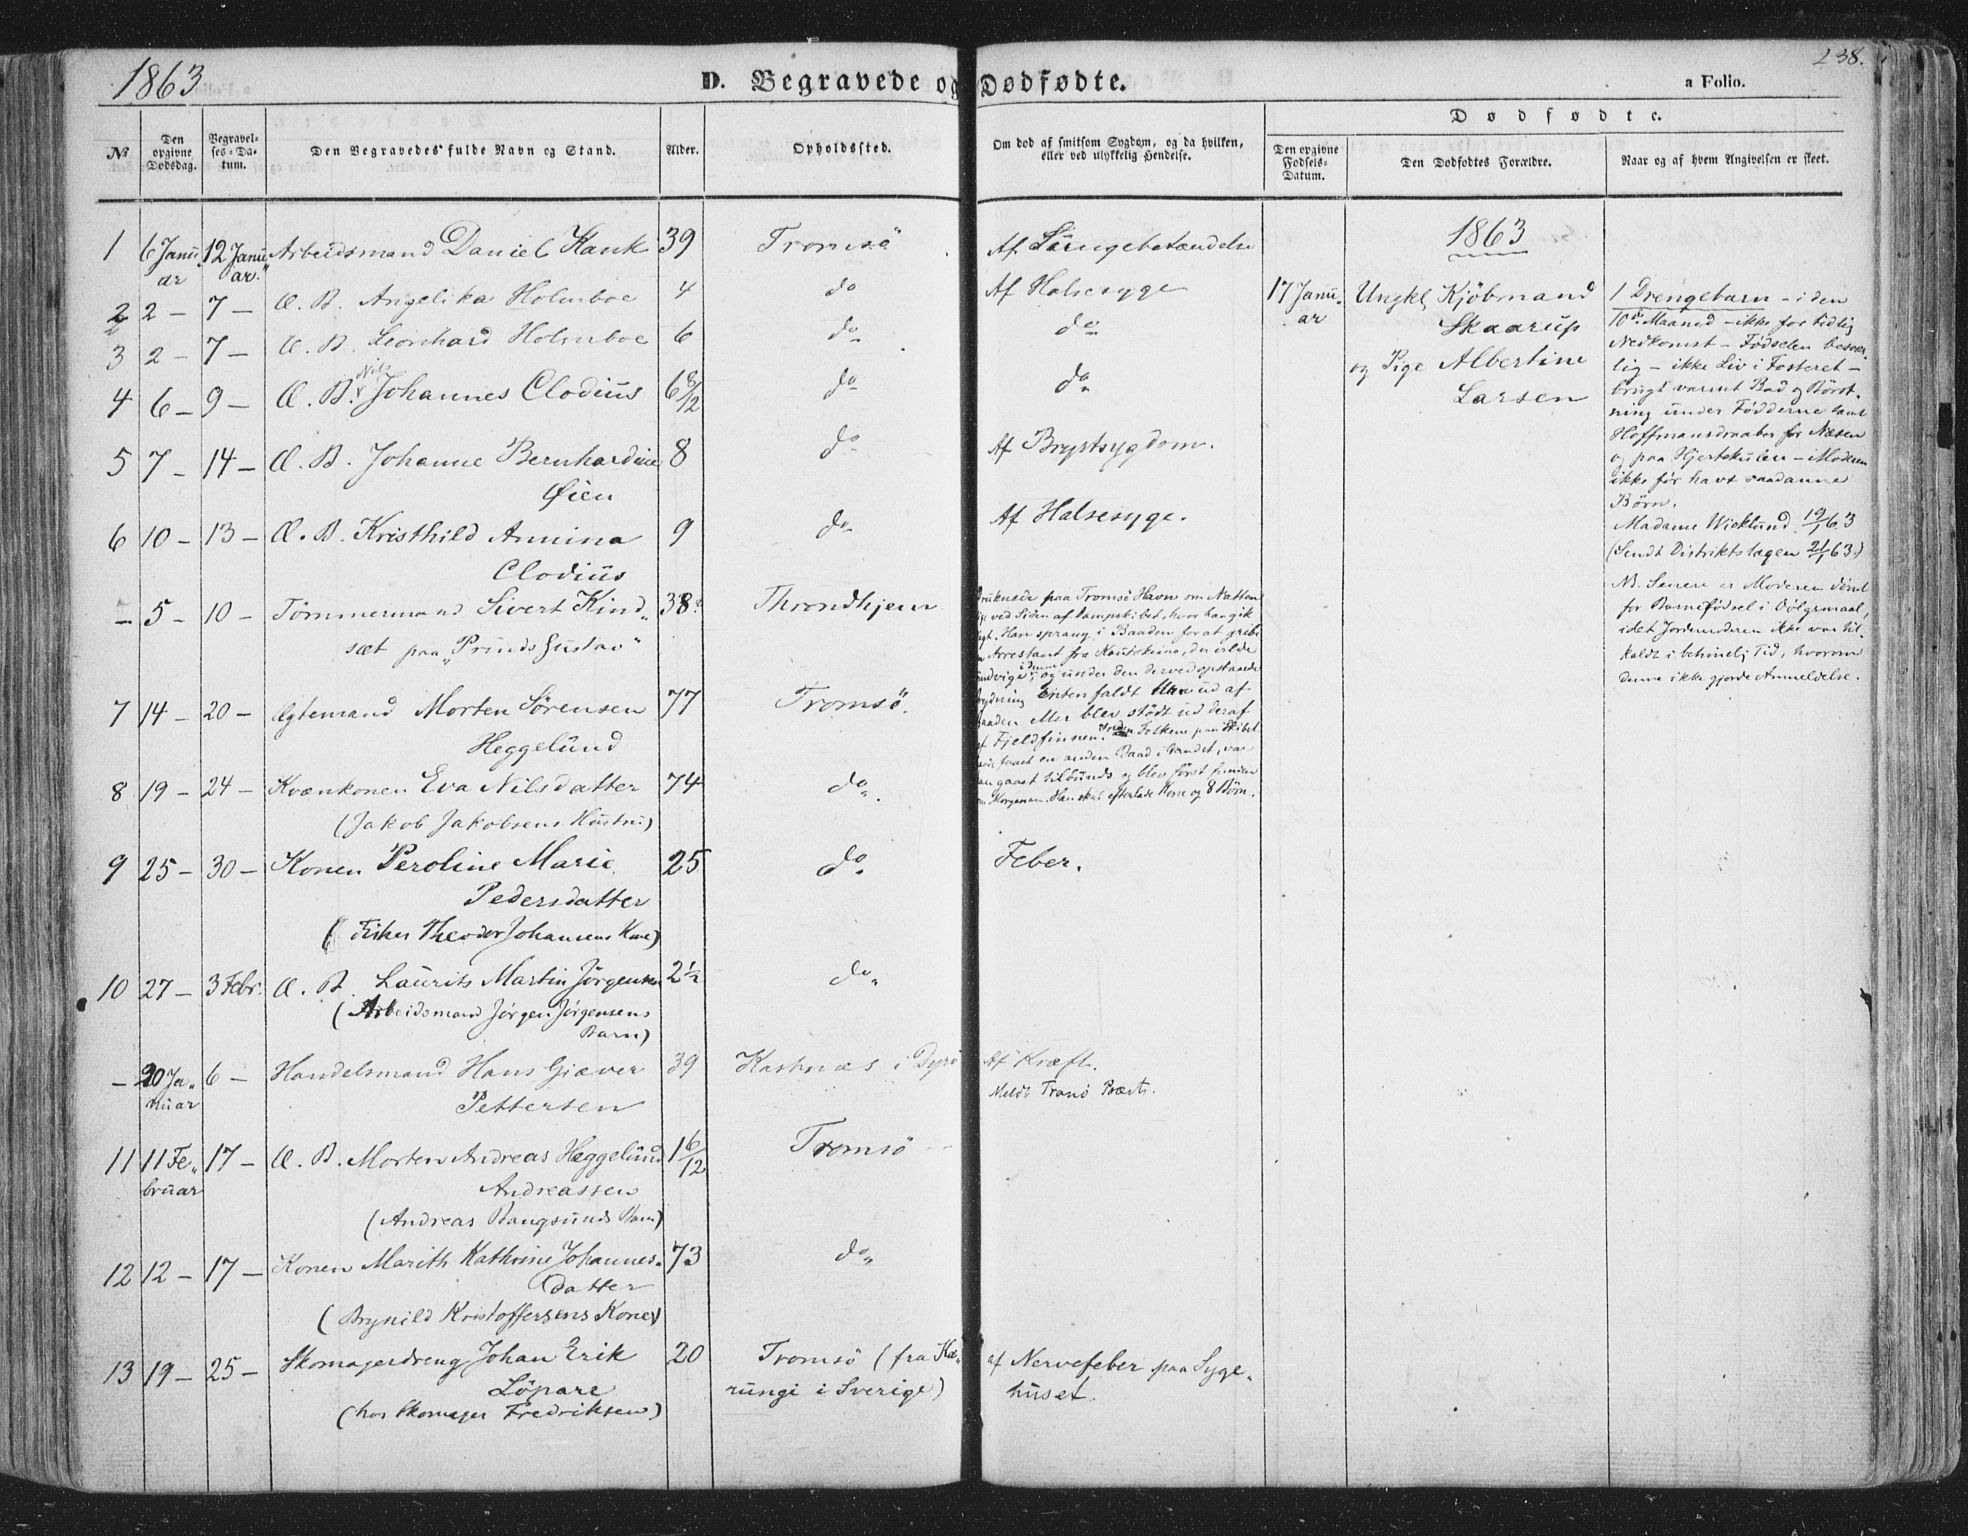 1863
D. Begravede og Dødfødte.
238.
a Folio.
No
Den opgivne Dødsdag.
Begravelses-Datum.
Den Begravedes fulde Navn og Stand.
Alder.
Opholdssted.
Om død af smitsom Sygdom, og da hvilken, eller ved ulykkelig Hendelse.
Dødfødte.
Den opgivne Fødsels-Datum.
Den Dødfødtes Forældre.
Naar og af hvem Angivelsen er skeet.
1 6 Januar 12 Januar Arbeidsmand Daniel Kauk 39 Tromsö Af Lungebetændelse
2 2 - 7 - Æ. B. Angelika Holmboe 4 do Af Halsesyge
3 2 - 7 - Æ. B. Leonhard Holmboe 6 do do
4 6 - 9 - Æ. B. Nils Johannes Clodius 6 8/12 do do
5 7 - 14 - Æ. B. Johanne Bernhardine 8 do Af Brystsygdom.
Øien
6 10 - 13 - Æ. B. Kristhild Annina 9 do Af Halsesyge.
Clodius
- 5 - 10 - Tømmermand Sivert Kind 38 Throndhjem
sæt paa "Prinds Gustav"
paa Tromsö Havn om Natten
ved Siden af Dampskibet, hvor han gik
Han sprang i Baaden for at gribe
Arrestant fra Koutokeino, der vilde
undvige, og under den derved opstaaede
enten faldt ud af
eller blev stödt ud deraf
af Fjeldfinnen. Folkene paa Skibet
faaet en anden Baad i Vandet, var
gaaet tilbunds og blev först funden
Morgenen. Han skal efterlade Kone og 8 Børn.
7 14 - 20 - Ægtemand Morten Sørensen 77 Tromsö.
Heggelund
8 19 - 24 - Kvænkonen Eva Nilsdatter 74 do
(Jakob Jakobsens Hustru)
9 25 - 30 - Konen Peroline Marie 25 do Feber.
Pedersdatter
(Fisker Theodor Johansens Kone)
10 27 - 3 Febr. Æ. B. Laurits Martin Jørgensen 2 1/2 do
(Arbeidsmand Jørgen Jørgensens
Barn)
- 20 Januar 6 - Handelsmand Hans Giæver 39 Kastnæs i Dyrö Af Kræft.
Pettersen Meldt Tranö Præst.
11 11 Februar 17 - Æ. B. Morten Andreas Heggelund 1 6/12 Tromsö
Andreassen
(Andreas Bangsunds Barn)
12 12 - 17 - Konen Marith Kathrine Johannes- 73 do
datter
(Brynild Kristoffersens Kone)
13 19 - 25 - Skomagerdreng Johan Erik 20 Tromsö (fra Ka- af Nervefeber paa Syge-
Löpare rungi i Sverige) huset.
(hos Skomager Fredriksen)
1863
17 Januar
Ungkl. Kjöbmand
Skaarup
og Pige Albertine
Larsen
1 Drengebarn - i den
10de Maaned - ikke for tidlig
Nedkomst - Fødselen besvær-
lig - ikke Liv i Fosteret -
brugt varmt Bad og Børst-
ning under Fødderne samt
Hoffmansdraaber for Næsen
og paa Hjertekulen - Moderen
ikke før havt saadanne
Børn.
Madame Wicklund 19/1 63
(Sendt Distriktslægen 21/1 63.)
NB. Senere er Moderen dömt
for Barnefødsel i Dölgsmaal,
idet Jordemoderen ikke var til-
kaldt i behørig Tid, hvorom
denne ikke gjorde Anmeldelse.